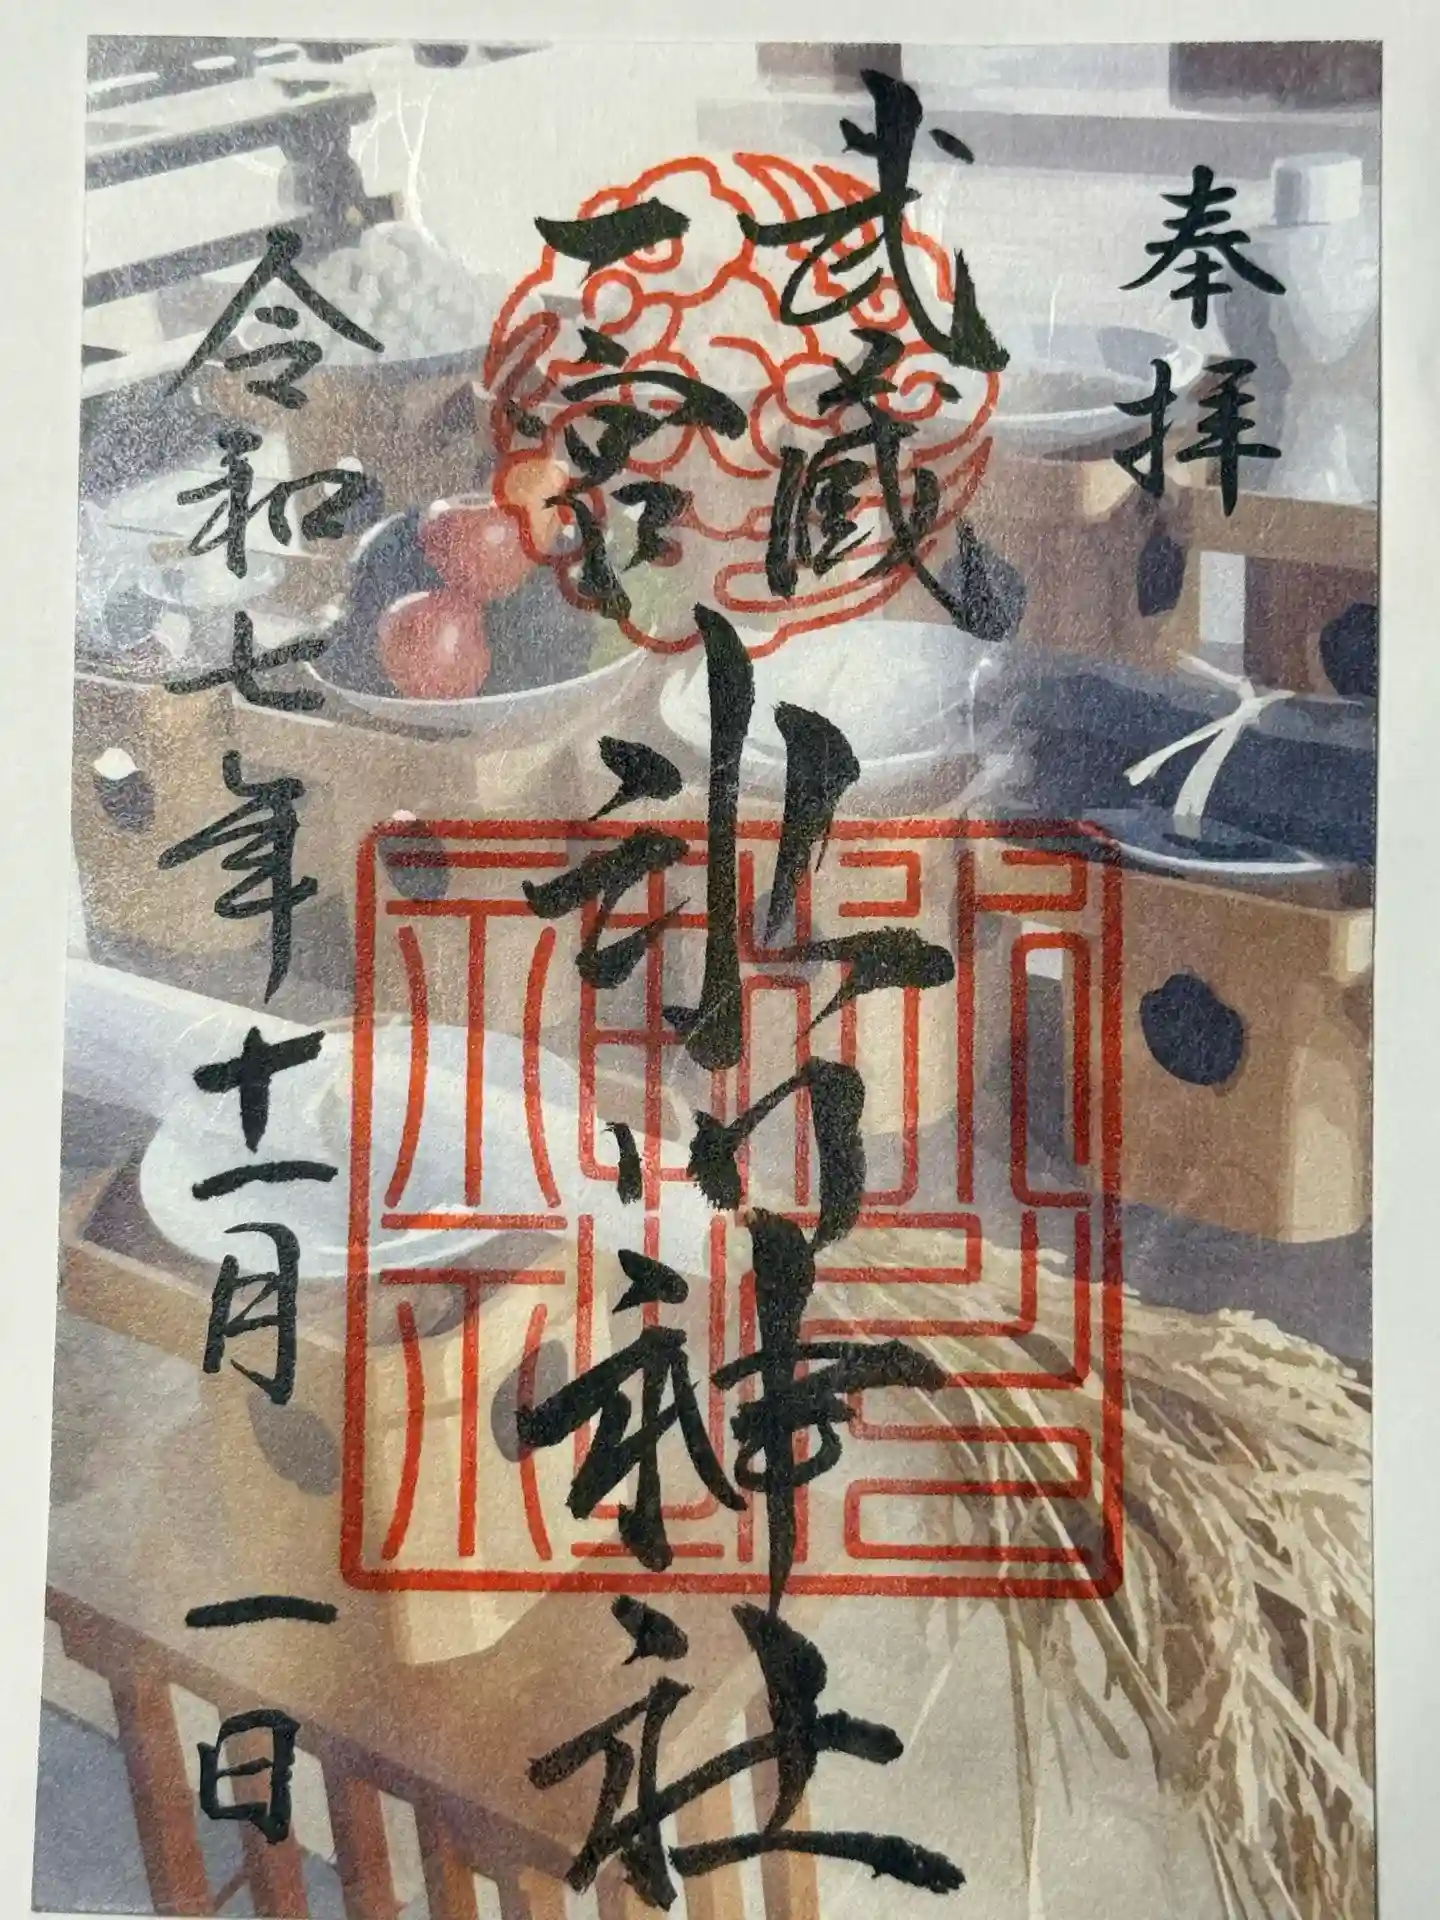 奉拝
武蔵
一宮
氷川神社
令和七年十一月一日